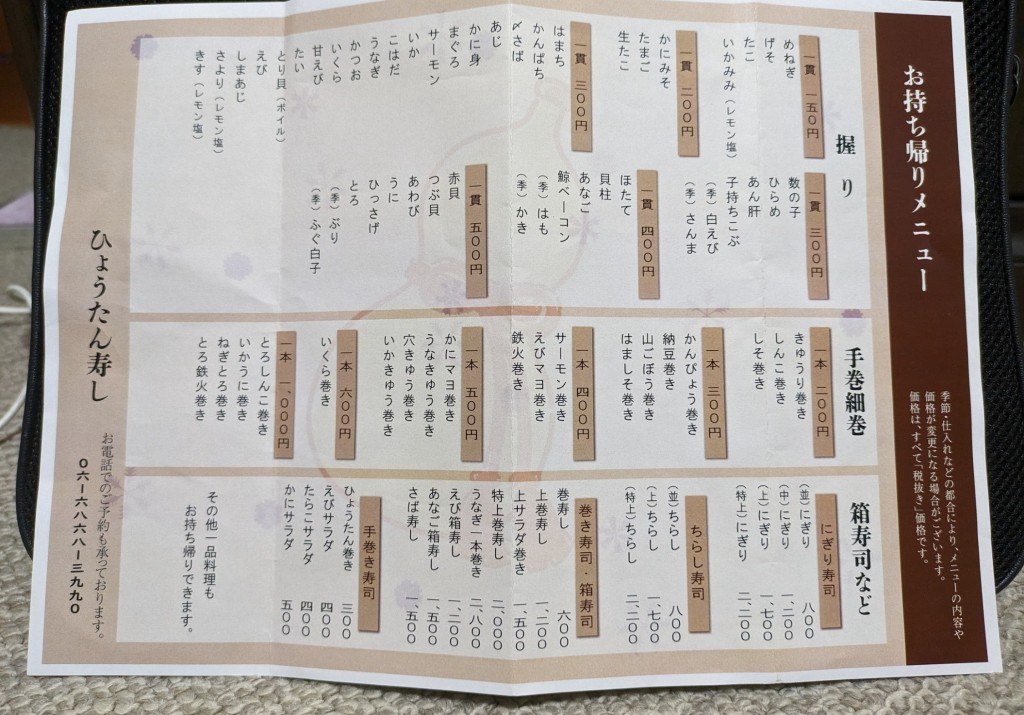 お持ち帰りメニュー
季節・仕入れなどの都合により、メニューの内容や
価格が変更になる場合がございます。
価格は、すべて「税抜き」価格です。
握り
一貫 一五〇円
めねぎ
げそ
たこ
いかみみ（レモン塩）
一貫 二〇〇円
かにみそ
たまご
生たこ
一貫 三〇〇円
はまち
かんぱち
〆さば
あじ
かに身
まぐろ
サーモン
いか
こはだ
うなぎ
かつお
いくら
甘えび
たい
とり貝（ボイル）
えび
しまあじ
さより（レモン塩）
きす（レモン塩）
一貫 三〇〇円
数の子
ひらめ
あん肝
子持ちこぶ
（季）白えび
（季）さんま
一貫 四〇〇円
ほたて
貝柱
あなご
鯨ベーコン
（季）はも
（季）かき
一貫 五〇〇円
赤貝
つぶ貝
あわび
うに
ひっさげ
とろ
（季）ぶり
（季）ふぐ白子
手巻細巻
一本 二〇〇円
きゅうり巻き
しんこ巻き
しそ巻き
一本 三〇〇円
かんぴょう巻き
納豆巻き
山ごぼう巻き
はましそ巻き
一本 四〇〇円
サーモン巻き
えびマヨ巻き
鉄火巻き
一本 五〇〇円
かにマヨ巻き
うなきゅう巻き
穴きゅう巻き
いかきゅう巻き
一本 六〇〇円
いくら巻き
一本 一、〇〇〇円
とろしんこ巻き
いかうに巻き
ねぎとろ巻き
とろ鉄火巻き
箱寿司など
にぎり寿司
（並）にぎり 八〇〇
（中）にぎり 一、二〇〇
（上）にぎり 一、七〇〇
（特上）にぎり 二、二〇〇
ちらし寿司
（並）ちらし 八〇〇
（上）ちらし 一、七〇〇
（特上）ちらし 二、二〇〇
巻き寿司・箱寿司
巻寿し 六〇〇
上巻寿し 一、二〇〇
上サラダ巻き 一、五〇〇
特上巻寿し 二、〇〇〇
うなぎ一本巻き 二、八〇〇
えび箱寿し 一、二〇〇
あなご箱寿し 一、五〇〇
さば寿し 一、五〇〇
手巻き寿司
ひょうたん巻き 三〇〇
えびサラダ 四〇〇
たらこサラダ 四〇〇
かにサラダ 五〇〇
その他一品料理も
お持ち帰りできます。
ひょうたん寿し
お電話でのご予約も承っております。
０６ー６８６８ー３９９０